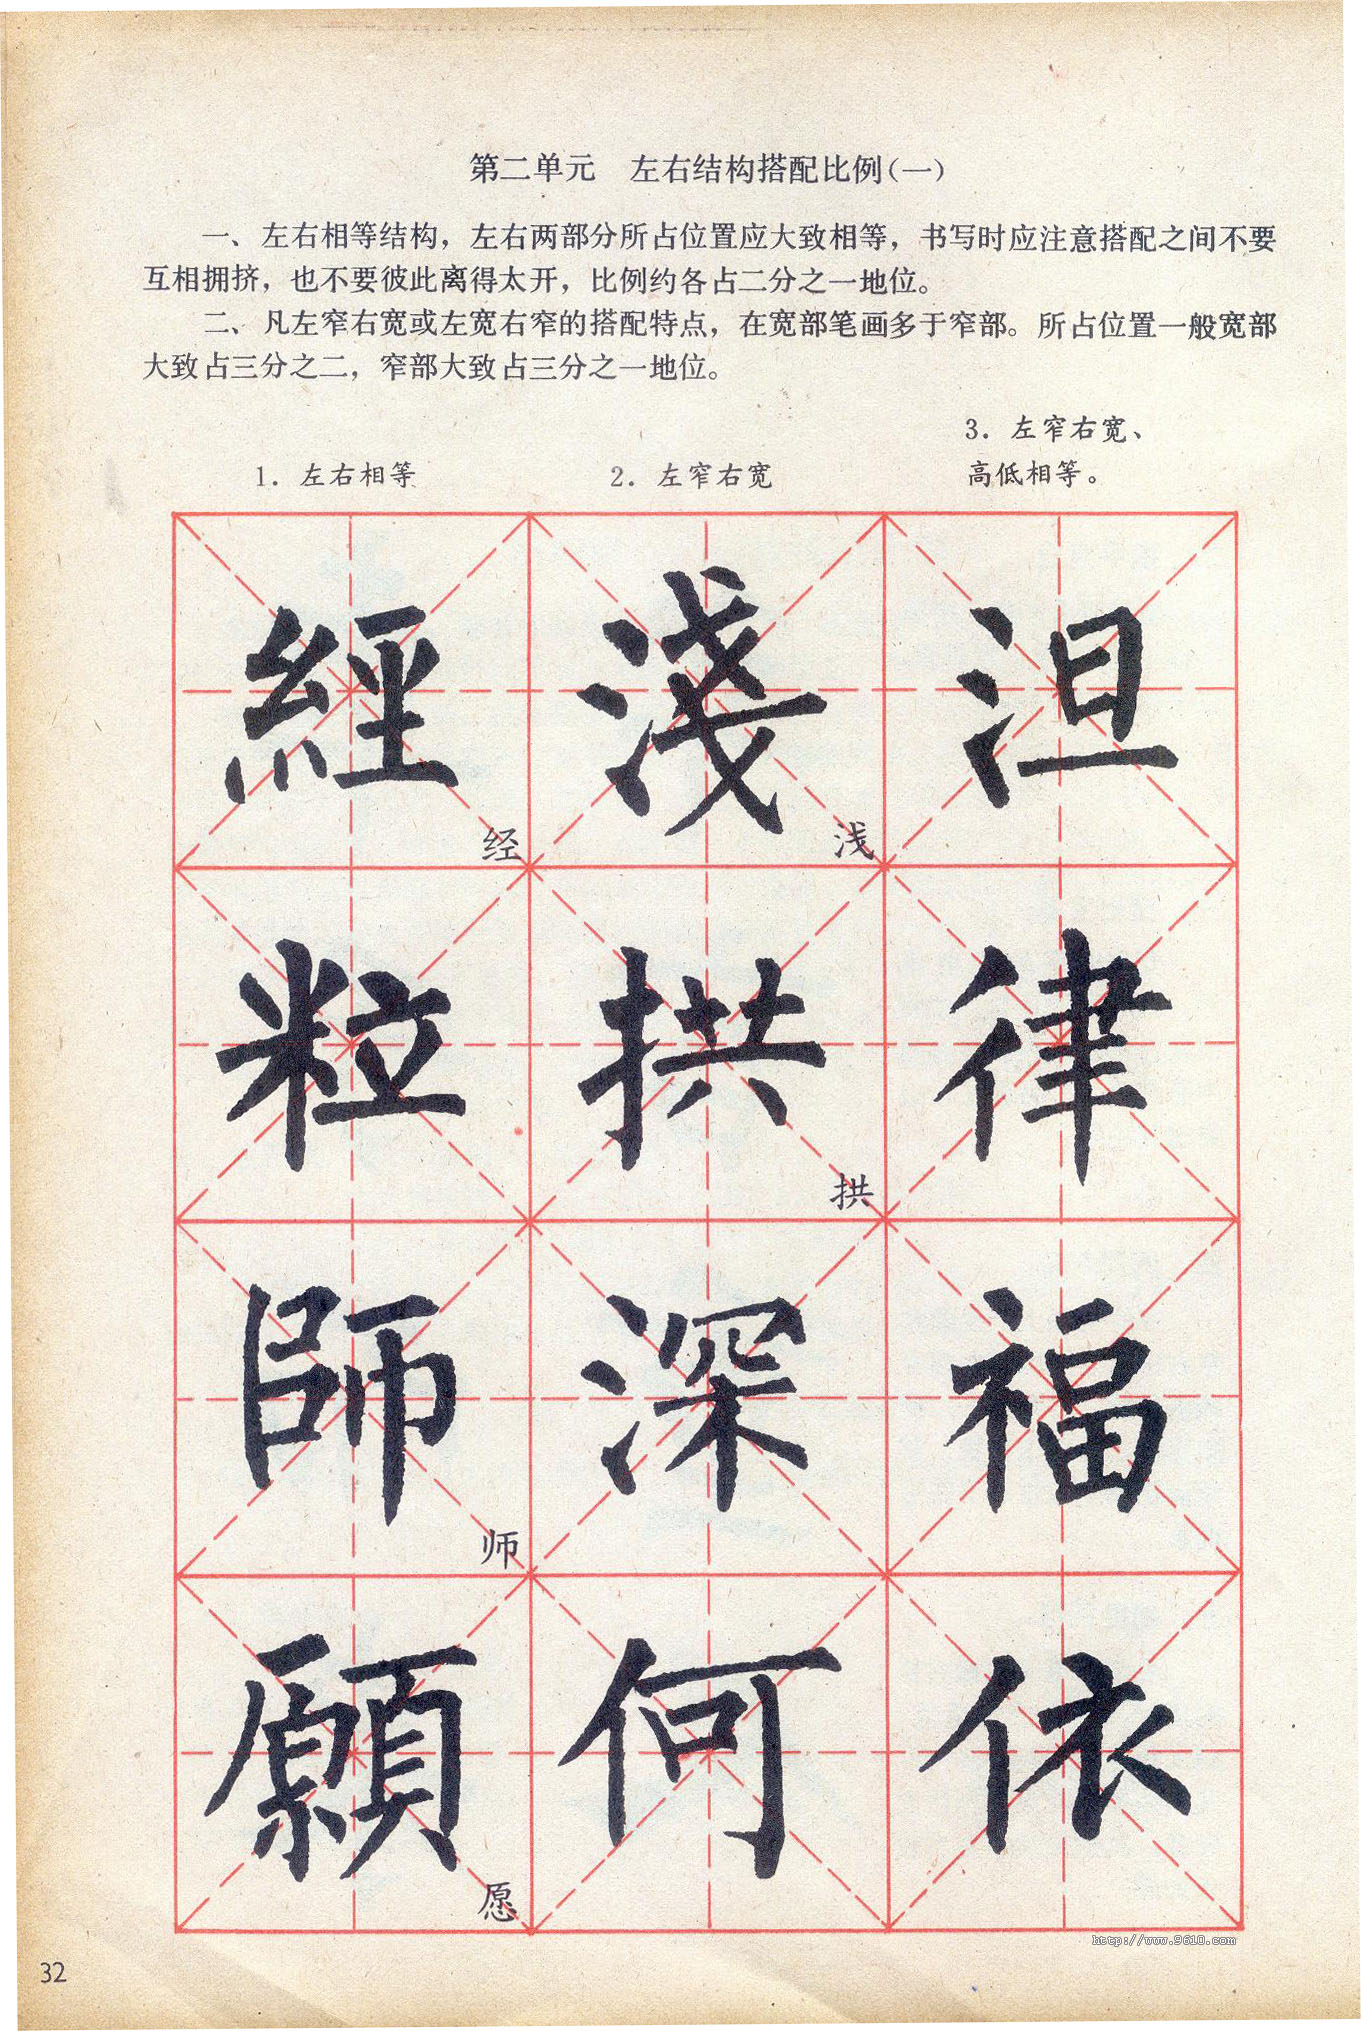 第二单元　左右结构搭配比例(一)
一、左右相等结构，左右两部分所占位置应大致相等，书写时应注意搭配之间不要
互相拥挤，也不要彼此离得太开，比例约各占二分之一地位。
二、凡左窄右宽或左宽右窄的搭配特点，在宽部笔画多于窄部。所占位置一般宽部
大致占三分之二，窄部大致占三分之一地位。
1. 左右相等
2. 左窄右宽
3. 左窄右宽、
高低相等。
經 淺 泹
经 浅
粒 拱 律
拱
師 深 福
师
願 何 依
愿
http://www.9610.com
32